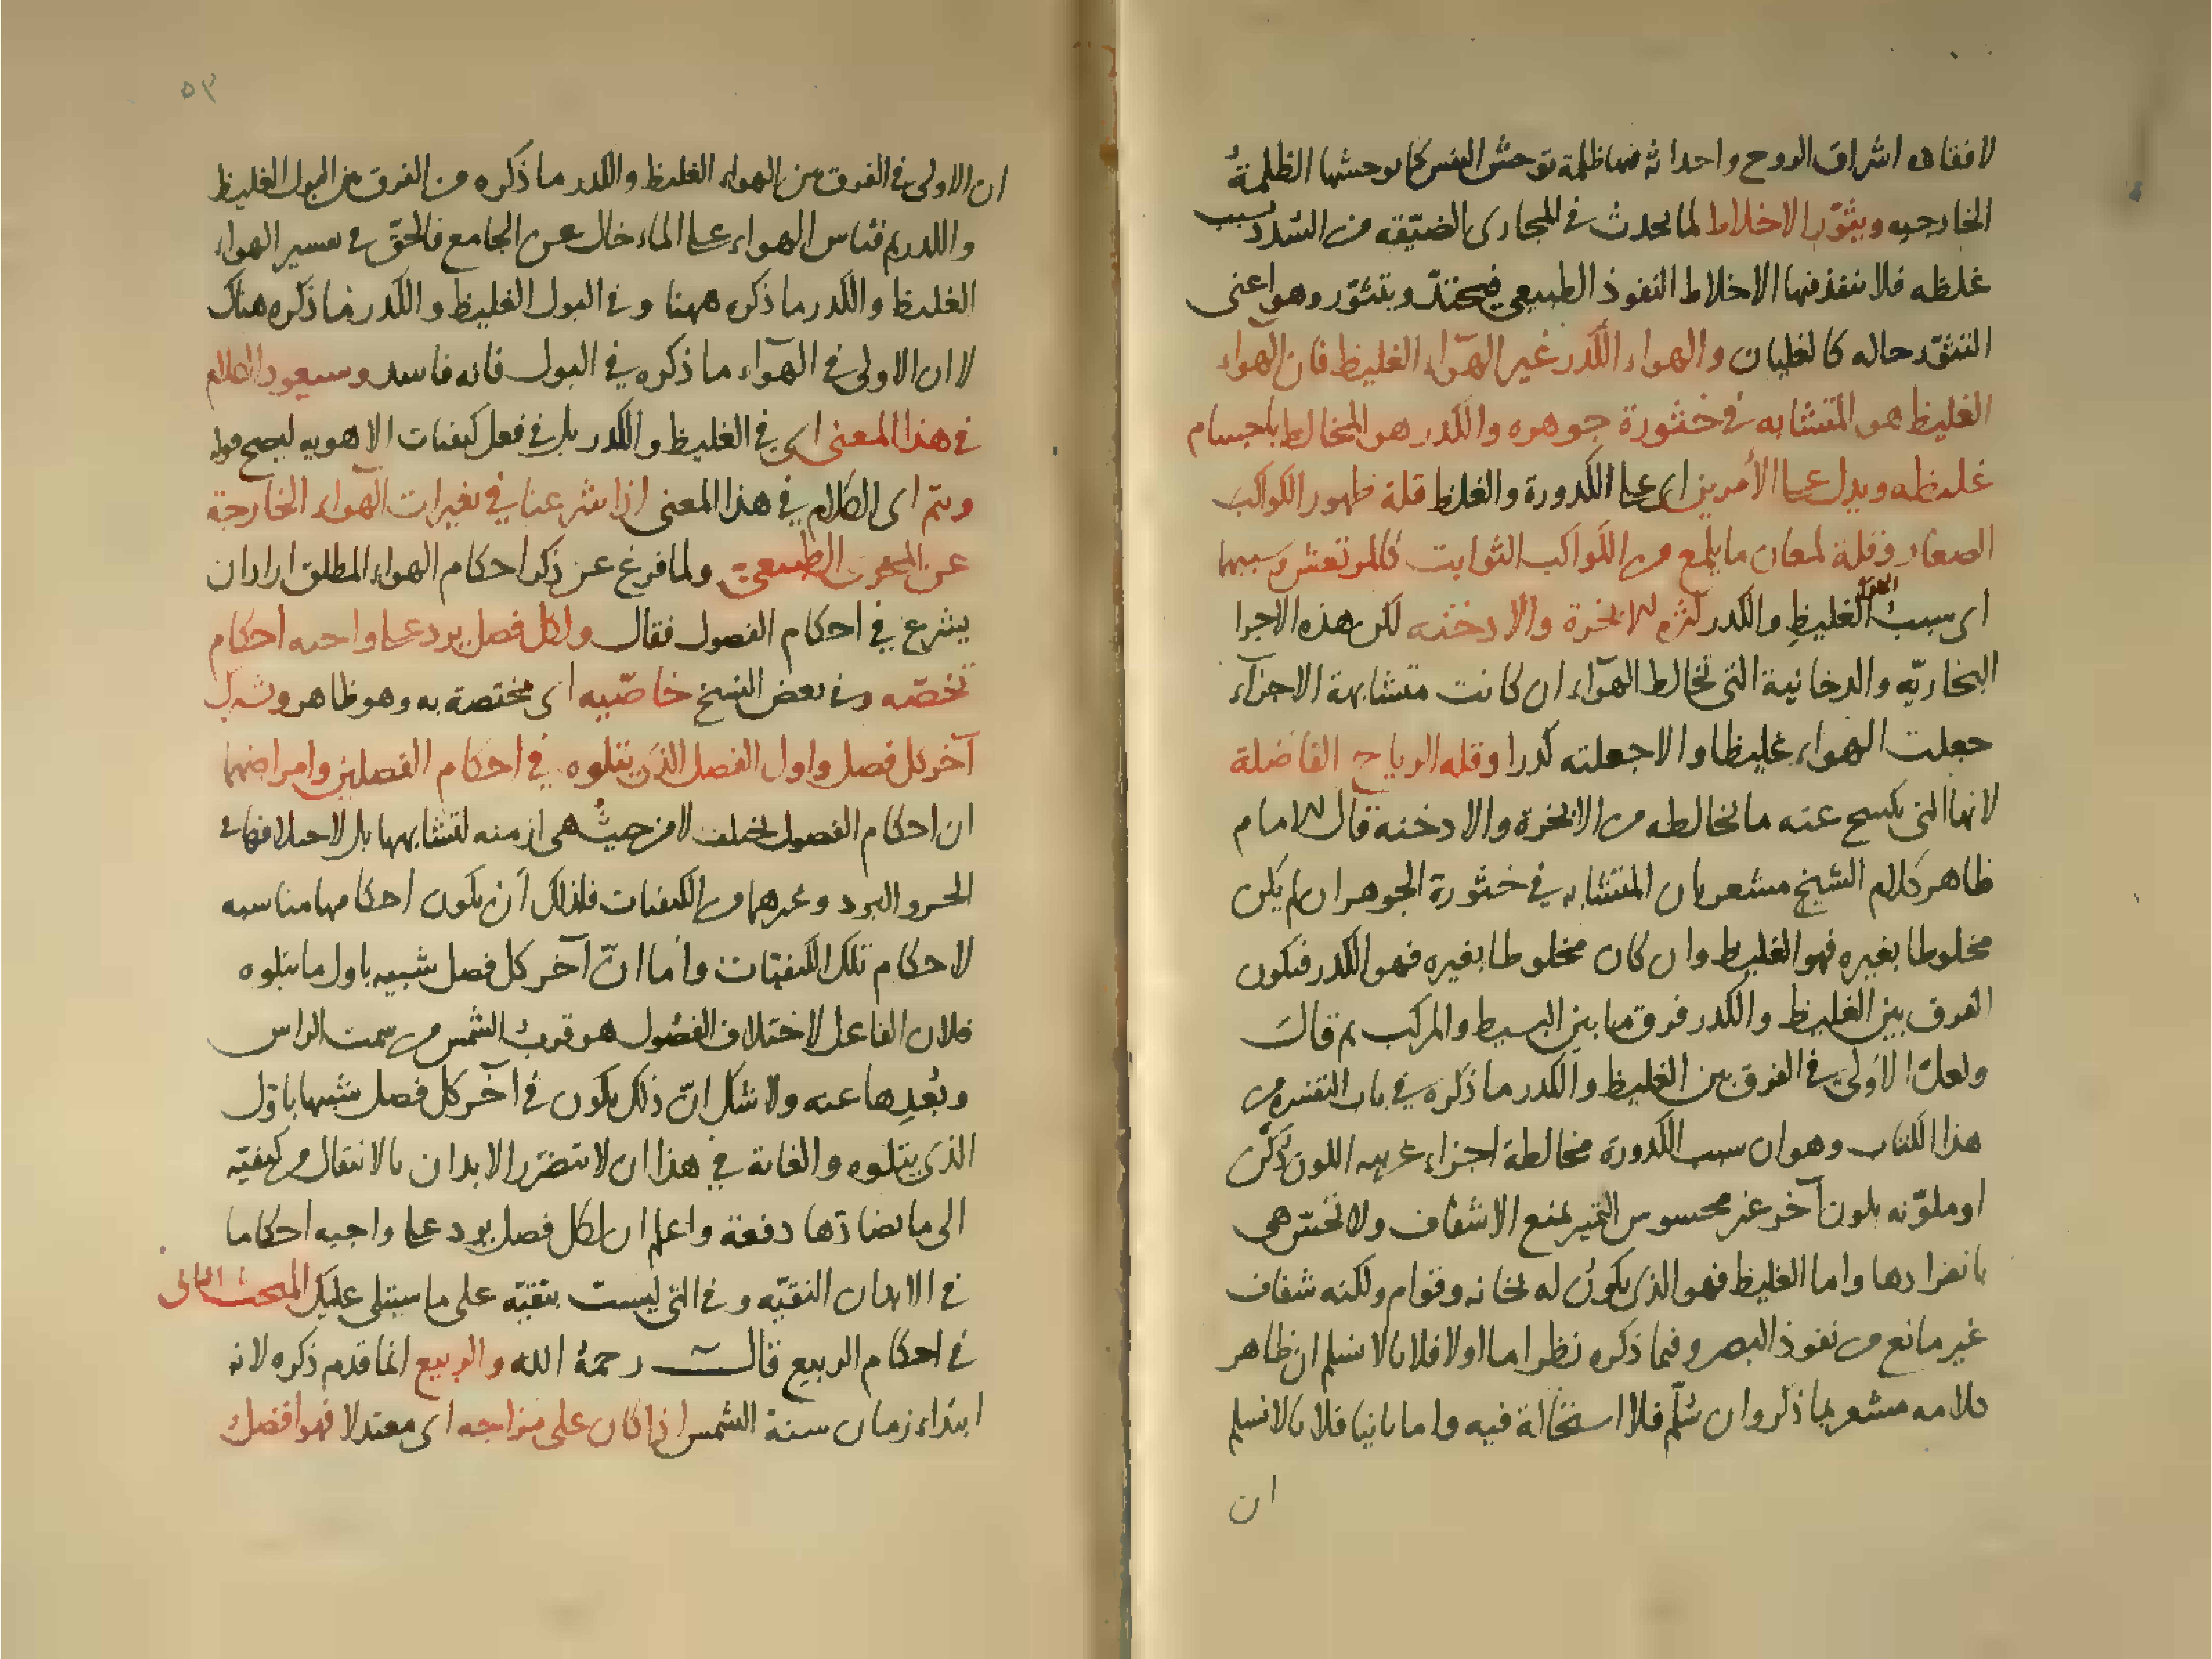 لافقاده اشراق الروح واحداثه فيها ظلمة توحش النفس كما توحشها الظلمة
الخارجيه ويثوّر الاخلاط لما يحدث في المجارى الضيّقه من السّدد بسبب
غلظه فلا تنفذ فيها الاخلاط النفوذ الطبيعي فيحتدّ ويتثوّر وهو اعنى
التثوّر حاله كالغليان والهواء الكدر غير الهوآء الغليظ فان الهوآء
الغليظ هو المتشابه في خثورة جوهره والكدر هو المخالط باجسام
غليظه ويدل على الأمرين اى على الكدورة والغلظ قلة ظهور الكواكب
الصغار وقلة لمعان ما يلمع من الكواكب الثوابت كالمرتعش وسببهما
اى سببُ الهوآء الغليظِ والكدر كثرة الابخرة والادخنه لكن هذه الاجزا
البخاريّه والدخانية التى تخالط الهوآء ان كانت متشابهة الاجزآء
جعلت الهواء غليظا والا جعلته كدرا وقله الرياح الفاضلة
لانها التى يكسح عنه ما يخالطه من الابخرة والادخنه قال الامام
ظاهر كلام الشيخ مشعر بان المتشابه في خثورة الجوهر ان لم يكن
مخلوطا بغيره فهو الغليظ وان كان مخلوطا بغيره فهو الكدر فيكون
الفرق بين الغليظ والكدر فرق ما بين البسيط والمركب ثم قال
ولعلّ الاولى في الفرق بين الغليظ والكدر ما ذكره في باب التفسره من
هذا الكتاب وهو ان سبب الكدورة مخالطة اجزاء غريبه اللون دكن
او ملوّنه بلون آخر غير محسوس التميز تمنع الاشفاف ولا تحسّ هى
بانفرادها واما الغليظ فهو الذى يكون له ثخانه وقوام ولكنه شفاف
غير مانع من نفوذ البصر وفيما ذكره نظر اما اولا فلانا لا نسلم ان ظاهر
كلامه مشعر بما ذكر وان سُلّم فلا استحالة فيه واما ثانيا فلانا لا نسلم
ان
٥٣
ان الاولى في الفرق بين الهواء الغليظ والكدر ما ذكره من الفرق بين البول الغليظ
والكدر ثم قياس الهواء على الماء خال عن الجامع فالحقّ في تفسير الهواء
الغليظ والكدر ما ذكره ههنا وفي البول الغليظ والكدر ما ذكره هناك
لا ان الاولى في الهوآء ما ذكره في البول فانه فاسد وسيعود الكلام
في هذا المعنى اى في الغليظ والكدر بل في فعل كيفيات الاهويه ليصح قوله
ويتم اى الكلام في هذا المعنى اذا شرعنا في تغيرات الهوآء الخارجة
عن المجرى الطبيعى ولما فرغ عن ذكر احكام الهواء المطلق اراد ان
يشرع في احكام الفصول فقال ولكل فصل يرد على واجبه احكام
تخصّه وفي بعض النسخ خاصّيه اى مختصة به وهو ظاهر ويشترك
آخر كل فصل واول الفصل الذى يتلوه في احكام الفصلين وامراضهما
ان احكام الفصول تختلف لا من حيثُ هى ازمنه لتشابهها بل لاختلافها في
الحر والبرد وغيرهما من الكيفيات فلذلك أن يكون احكامها مناسبه
لاحكام تلك الكيفيّات وأما انّ آخر كل فصل شبيه باول ما يتلوه
فلان الفاعل لاختلاف الفصُول هو قربُ الشمس من سمت الراس
وبُعدِها عنه ولا شك انّ ذلك يكون في آخر كل فصل شبيها باوّل
الذى يتلوه والغاية في هذا ان لا تتضرّر الابدان بالانتقال من كيفيّه
الى ما يضادّها دفعة واعلم ان لكل فصل يرد على واجبه احكاما
في الابدان النقيّه وفي التى ليست بنقيّه على ما سيتلى عليك المبحث الثانى
في احكام الربيع قالـــ رحمهُ الله والربيع انما قدم ذكره لانه
ابتداء زمان سنة الشمس اذا كان على مزاجه اى معتدلا فهو افضل